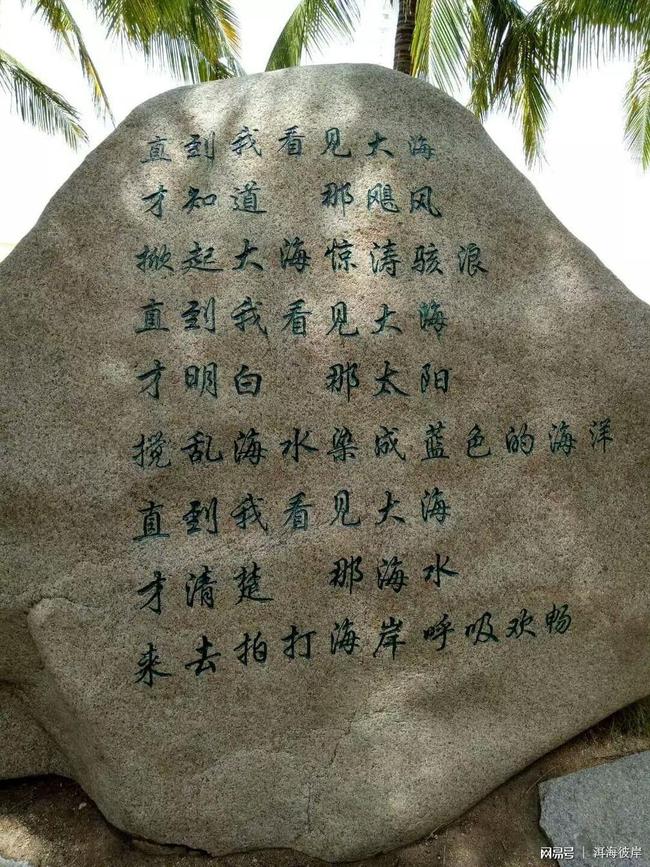 直到我看见大海
才知道 那飓风
掀起大海惊涛骇浪
直到我看见大海
才明白 那太阳
搅乱海水染成蓝色的海洋
直到我看见大海
才清楚 那海水
来去拍打海岸呼吸欢畅
网易号 | 洱海彼岸